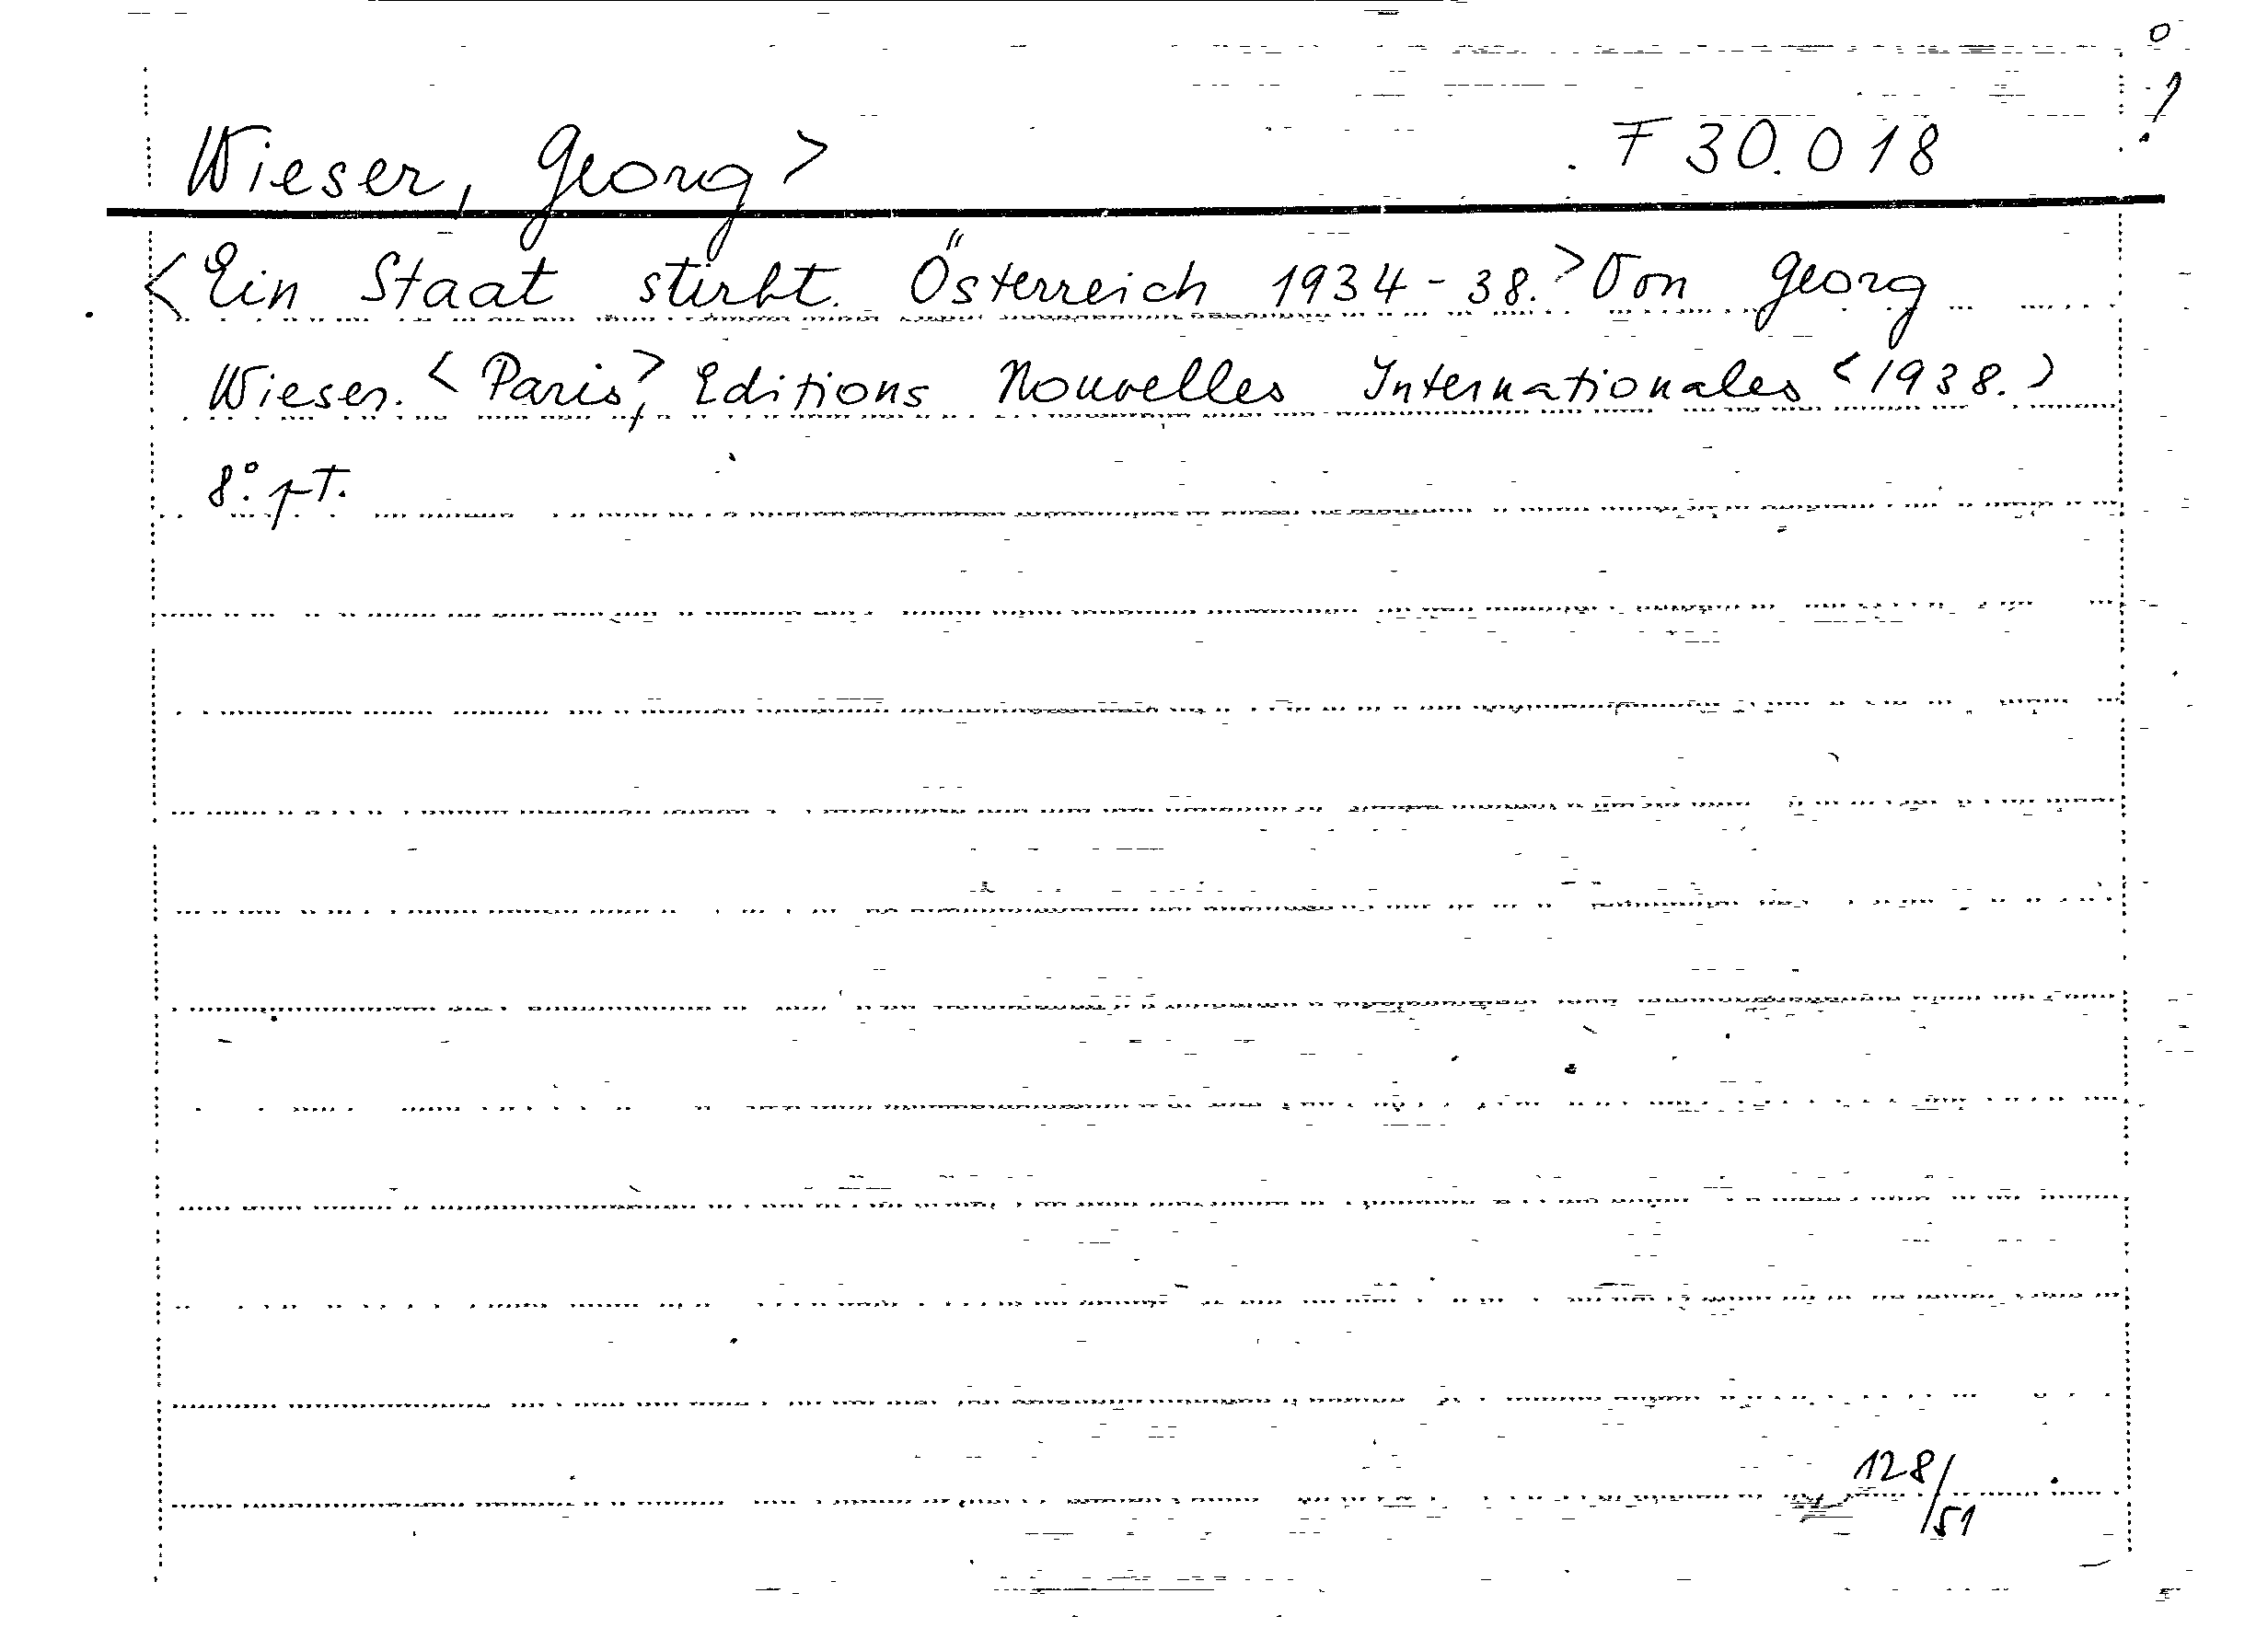 o
!
Wieser, Georg> F 30.018
<Ein Staat stirbt. Österreich 1934-38.> Von Georg
Wieser. <Paris,> Editions Nouvelles Internationales <1938.>
8°. pt.
128/51